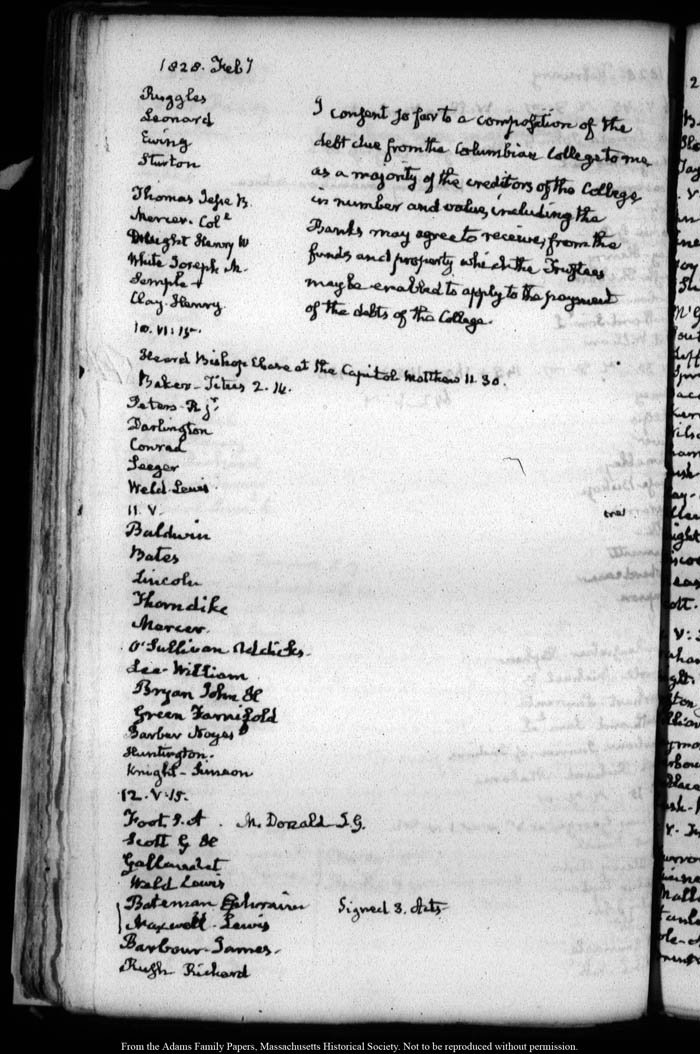 1828. Feb 7
Ruggles
Leonard
Ewing
Sturton
Thomas Jesse B.
Mercer. Col.
Dwight Henry W
White Joseph M.
Semple +
Clay. Henry.
I consent so far to a composition of the
debt due from the Columbian College to me
as a majority of the creditors of the College
in number and value, including the
Banks may agree to receive, from the
funds and property which the Trustees
may be enabled to apply to the payment
of the debts of the College.
10. VI: 15.
Heard Bishop at the Capitol Matthew 11. 30.
Baker - Titus 2. 14.
Peters R. jr.
Darlington
Conrad
Seeger
Weld Lewis
11. V.
Baldwin
Bates
Lincoln
Thorndike
Mercer.
O'Sullivan
Lee William
Bryan John H
Green Farnifold
Barber Noyes
Huntington.
Knight - Simeon
12. V. 15.
Foot S. A. McDonald J. G.
Scott G
Gallaudet
Weld Lewis
Bateman Ephraim Signed 3. Acts
Maxwell. Lewis
Barbour James.
Rush Richard
From the Adams Family Papers, Massachusetts Historical Society. Not to be reproduced without permission.